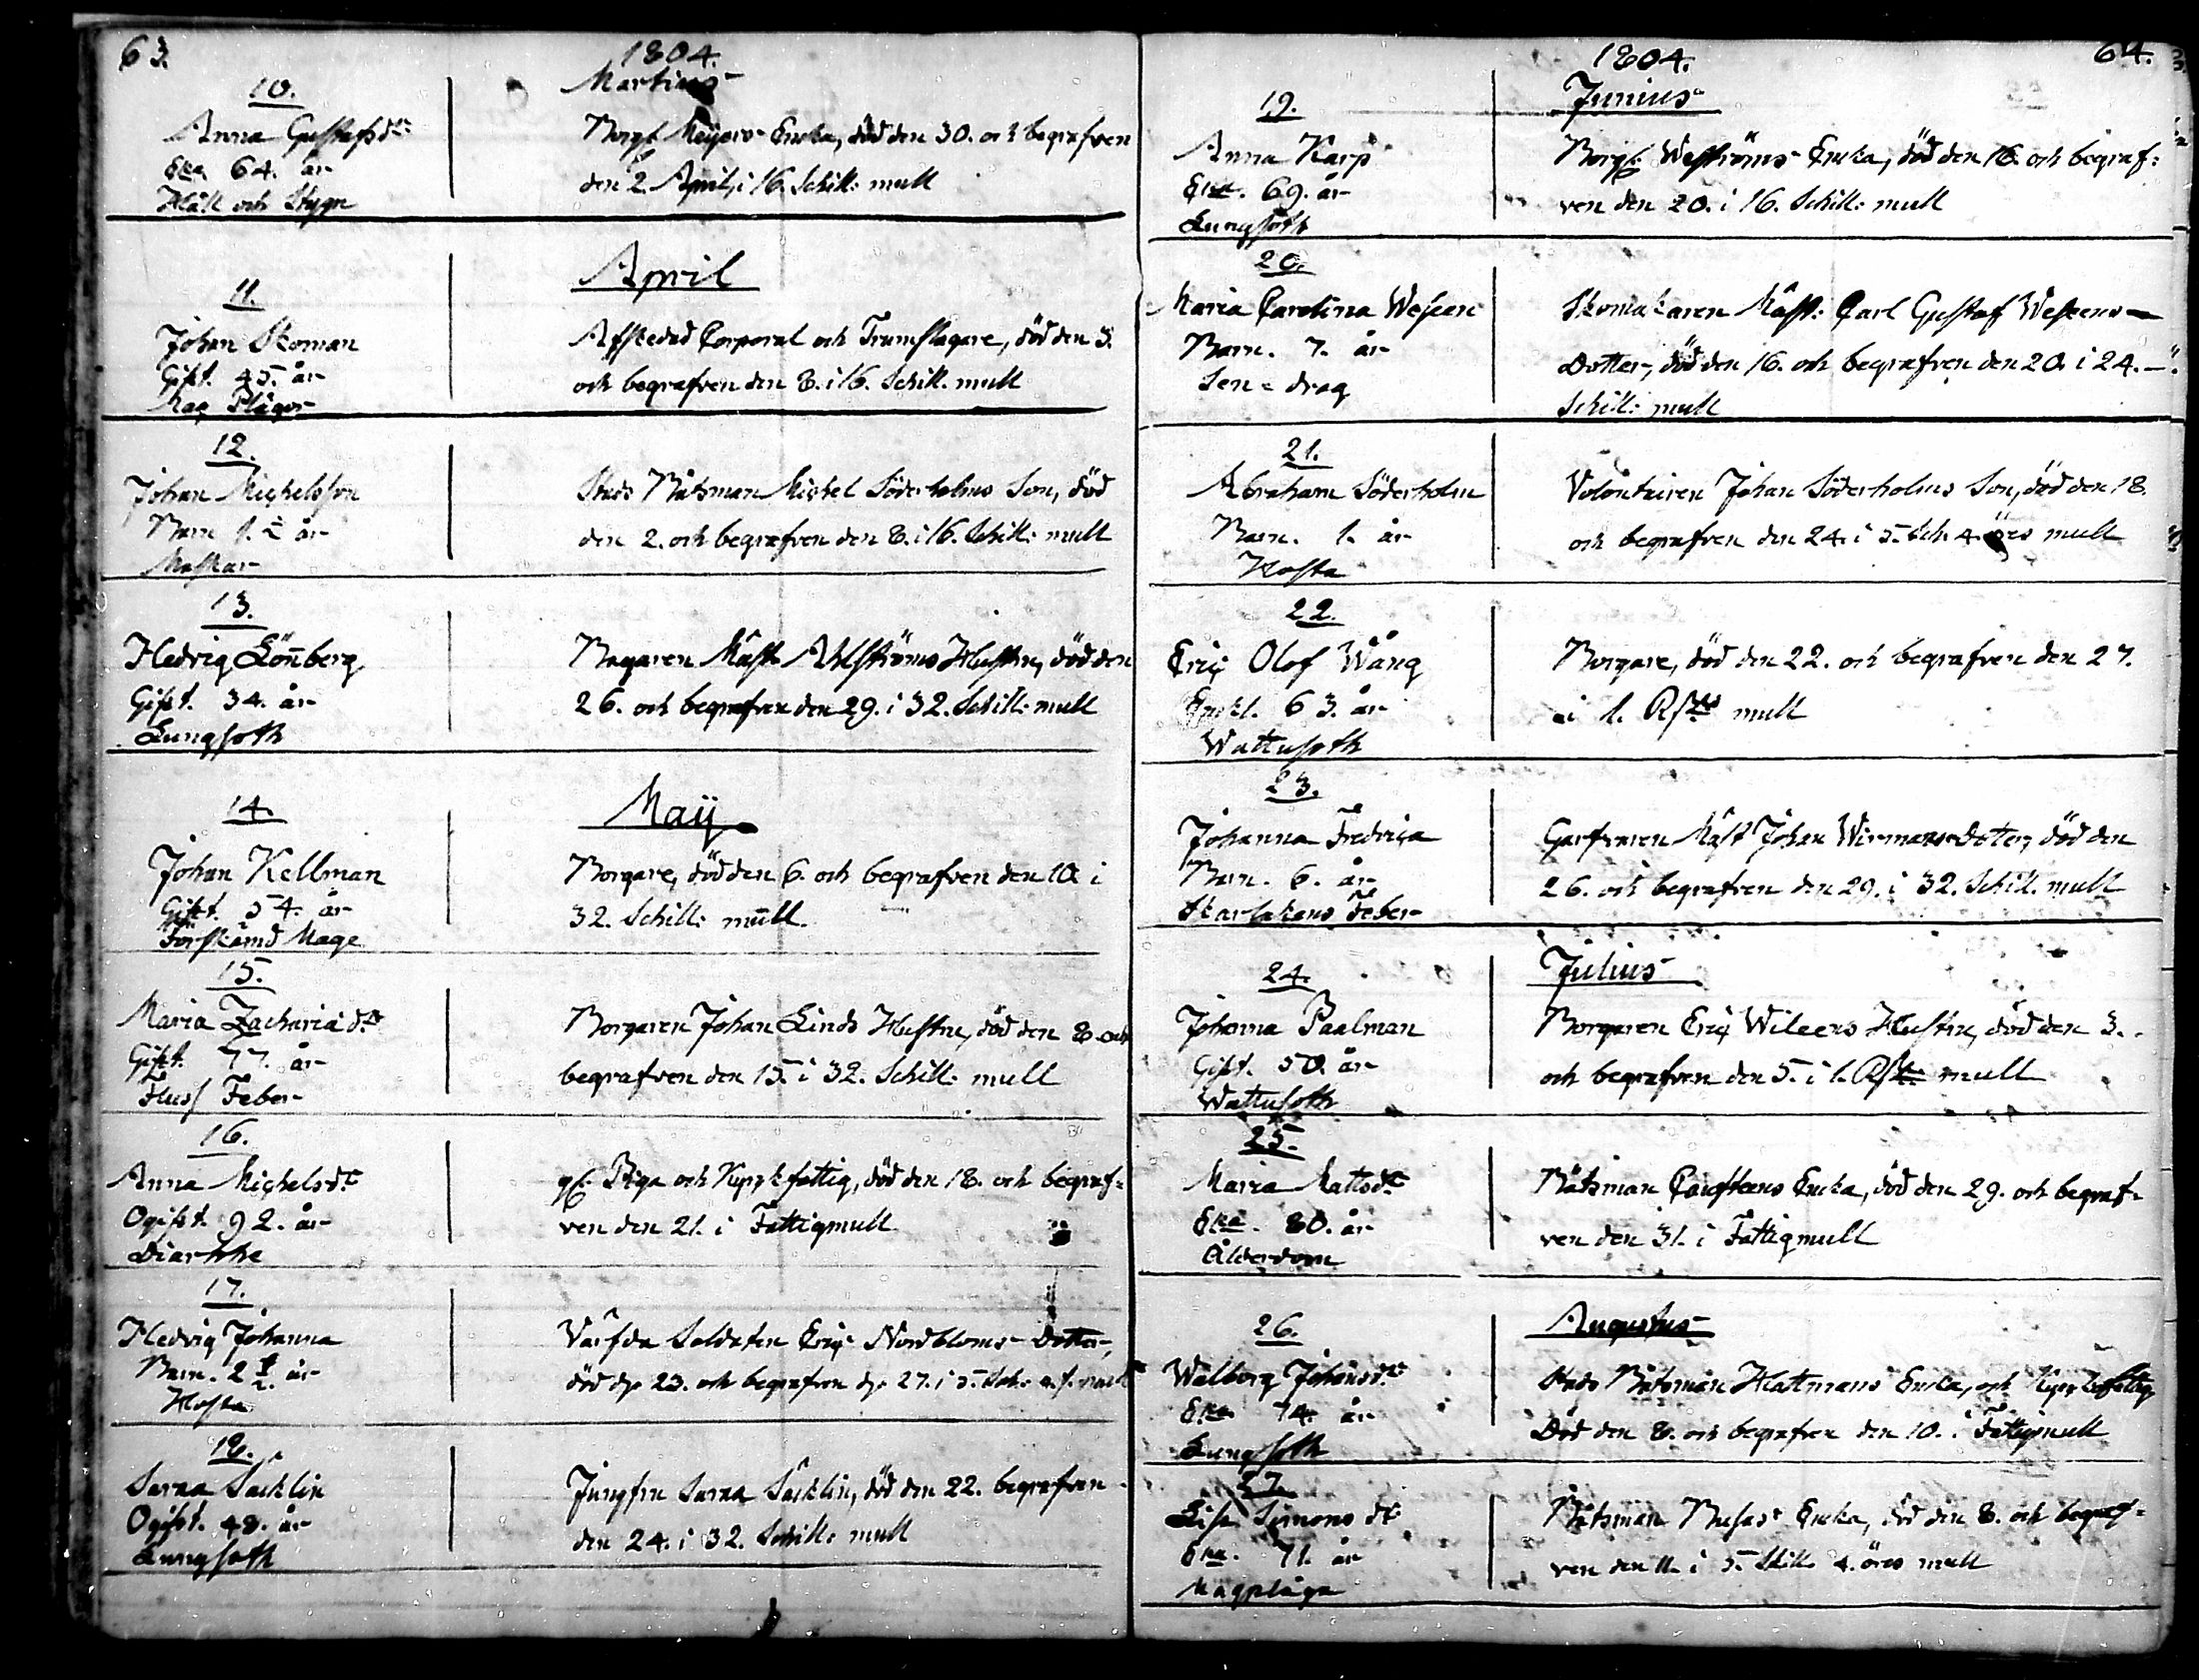 63.
1804.
Martius
10.
Anna Gustafsdr:
Eka 64. år
Håll och Stygn
Borg: Meijers Encka, död den 30. och begrafven
den 2. April, i 16. Schill: mull
April
11.
Johan Skoman
Gift. 45. år
Mag Plågor
Afskedad Corporal och Trumslagare, död den 3.
och begrafven den 8. i 16. Schill. mull
12.
Johan Michelsson
Barn 1. ½ år
Maskar
Stads Båtsman Michel Söderholms Son, död
den 2. och begrafven den 8. i 16. Schill: mull
13.
Hedvig Lönberg
Gift. 34. år
Lungsoth
Bagaren Mäst. Ahlströms Hustru, död den
26. och begrafven den 29. i 32. Schill: mull
Maij
14.
Johan Kellman
Gift. 54. år
Förskämd Mage
Borgare, död den 6. och begrafven den 10. i
32. Schill: mull.
15.
Maria Zachariædr
Gift. 77. år
Fluss Feber
Borgaren Johan Linds Hustru, död den 8. och
begrafven den 15. i 32. Schill: mull
16.
Anna Michelsdr
Ogift. 92. år
Diarrhe
gl: Piga och Kyrkfattig, död den 18. och begraf=
ven den 21. i Fattigmull
17.
Hedvig Johanna
Barn. 2 ½ år
Hosta
Värfda Soldaten Eric Nordbloms Dotter,
död d. 23. och begrafven d. 27. i 5. Sch. 4. mull
18.
Sarna Säcklin
Ogift. 48. år
Lungsoth
Jungfru Sarna Säcklin, död den 22. begrafven
den 24. i 32. Schill: mull
1804.
64.
Junius
19.
Anna Karp
Eka. 69. år
Lungsoth
Borg: Westroms Encka, död den 16. och begraf=
ven den 20. i 16. Schill: mull
20.
Maria Carolina
Barn. 7. år
Sen=drag
Skomakaren Mäst: Carl Gustaf
Dotter, död den 16. och begrafven den 20. i 24.
Schill: mull
21.
Abraham Söderholm
Barn. 1. år
Hosta
Volontairen Johan Söderholms Son, död den 18.
och begrafven den 24. i 5. Sch. 4. öres mull
22.
Eric Olof Wång
Enckl. 63. år
Wattusoth
Borgare, död den 22. och begrafven den 27.
i 1. mull
23.
Johanna Fredrica
Barn. 6. år
Skarlakans Feber
Garfvaren Mäst Johan Wirmans Dotter, död den
26. och begrafven den 29. i 32. Schill. mull
Julius
24.
Johanna Paalman
Gift. 50. år
Wattusoth
Borgaren Eric Wileens Hustru, död den 3.
och begrafven den 5. i 1. mull
25.
Maria Mattsdr
Eka. 80. år
Ålderdom
Båtsman Encka, död den 29. och begraf=
ven den 31. i Fattigmull
Augustus
26.
Walborg Johansdr
Eka 74. år
Lungsoth
Stads Båtsman Hattmans Encka, och Kyrkofattig
Död den 8. och begrafven den 10. i Fattigmull
27.
Lisa Simonsdr
Eka. 71. år
Magplåga
Båtsman Encka, död den 8. och begraf=
ven den 11. i 5. Skill. 4. öres mull